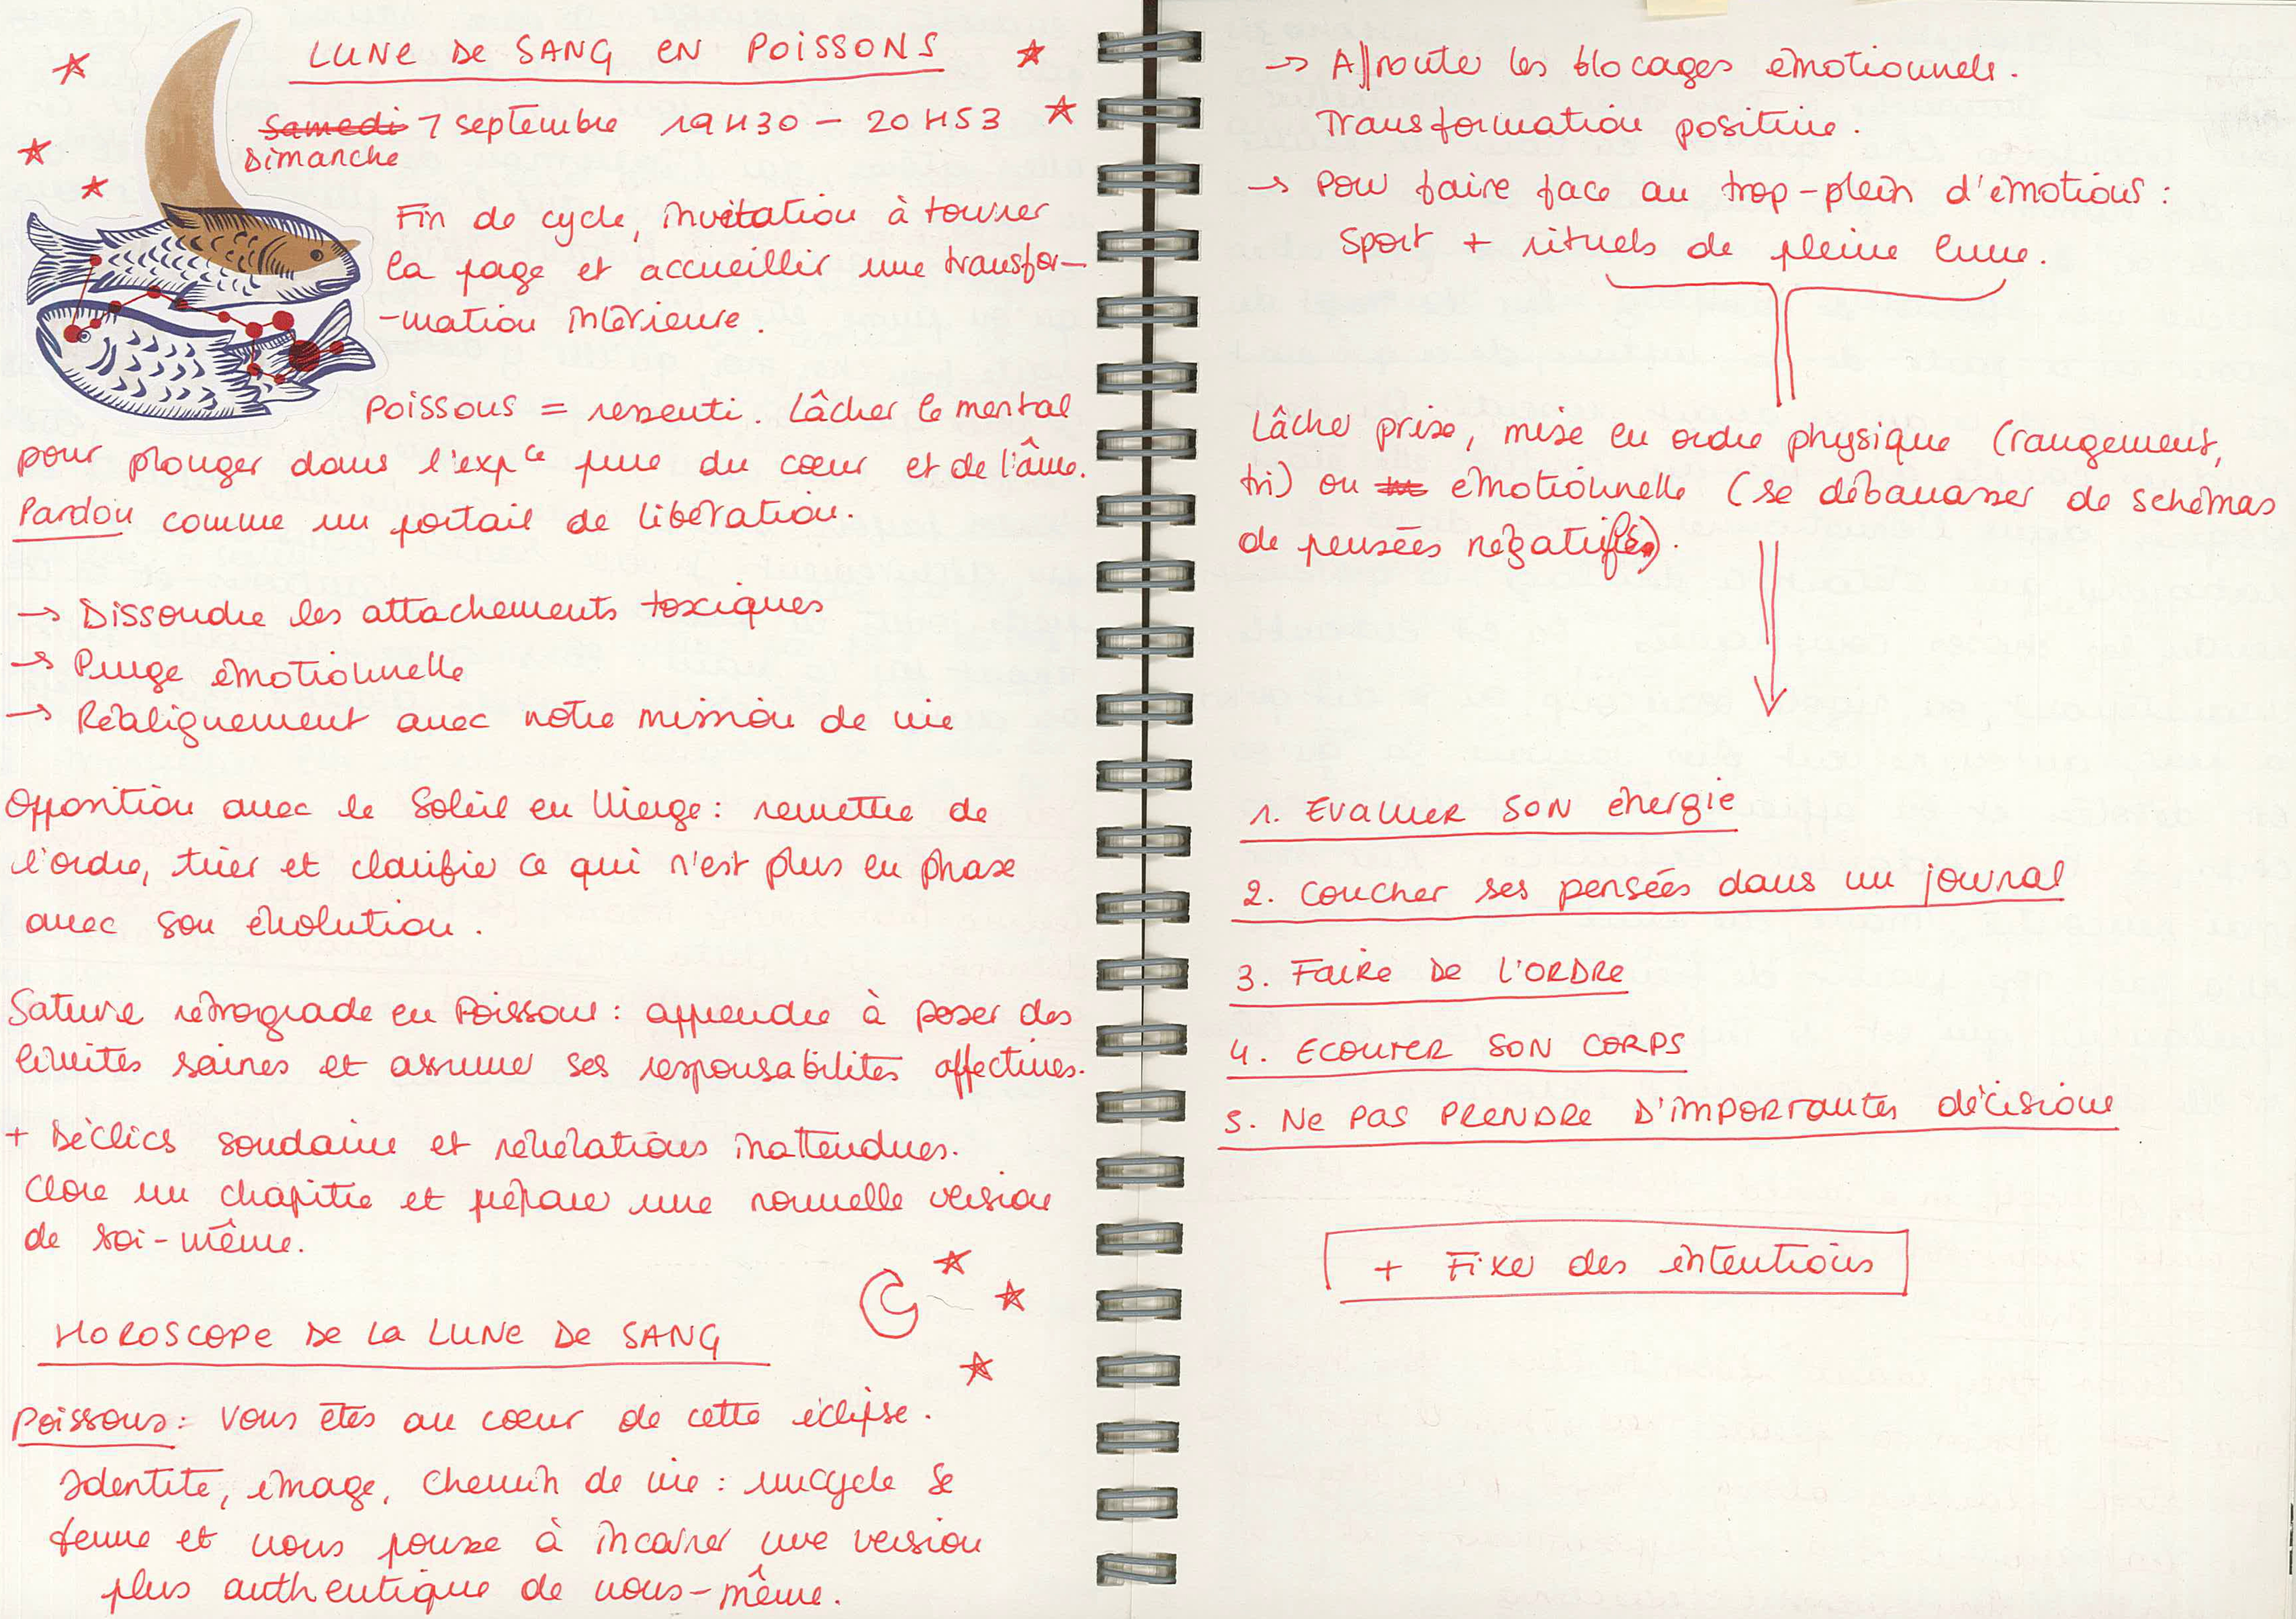 LUNE DE SANG EN POISSONS
Samedi 7 septembre 19H30 - 20H53
Dimanche
Fin de cycle, invitation à tourner
la page et accueillir une transfor-
-mation intérieure.
Poissons = ressenti. Lâcher le mental
pour plonger dans l'exp^ce pure du cœur et de l'âme.
Pardon comme un portail de libération.
→ Dissoudre les attachements toxiques
→ Purge émotionnelle
→ Réalignement avec notre mission de vie
Opposition avec le Soleil en Vierge : remettre de
l'ordre, trier et clarifier ce qui n'est plus en phase
avec son évolution.
Saturne rétrograde en Poissons : apprendre à poser des
limites saines et assumer ses responsabilités affectives.
+ Déclics soudains et révélations inattendues.
Clore un chapitre et préparer une nouvelle version
de soi-même.
HOROSCOPE DE LA LUNE DE SANG
Poissons : Vous êtes au cœur de cette éclipse.
Identité, image, chemin de vie : un cycle se
ferme et vous pousse à incarner une version
plus authentique de vous-même.
→ Affronter les blocages émotionnels.
Transformation positive.
→ Pour faire face au trop-plein d'émotions :
Sport + rituels de pleine lune.
Lâcher prise, mise en ordre physique (rangement,
tri) ou émotionnelle (se débarrasser de schémas
de pensées négatifs).
1. Evaluer son énergie
2. Coucher ses pensées dans un journal
3. Faire de l'ordre
4. Ecouter son corps
5. Ne pas prendre d'importantes décisions
+ Fixer des intentions